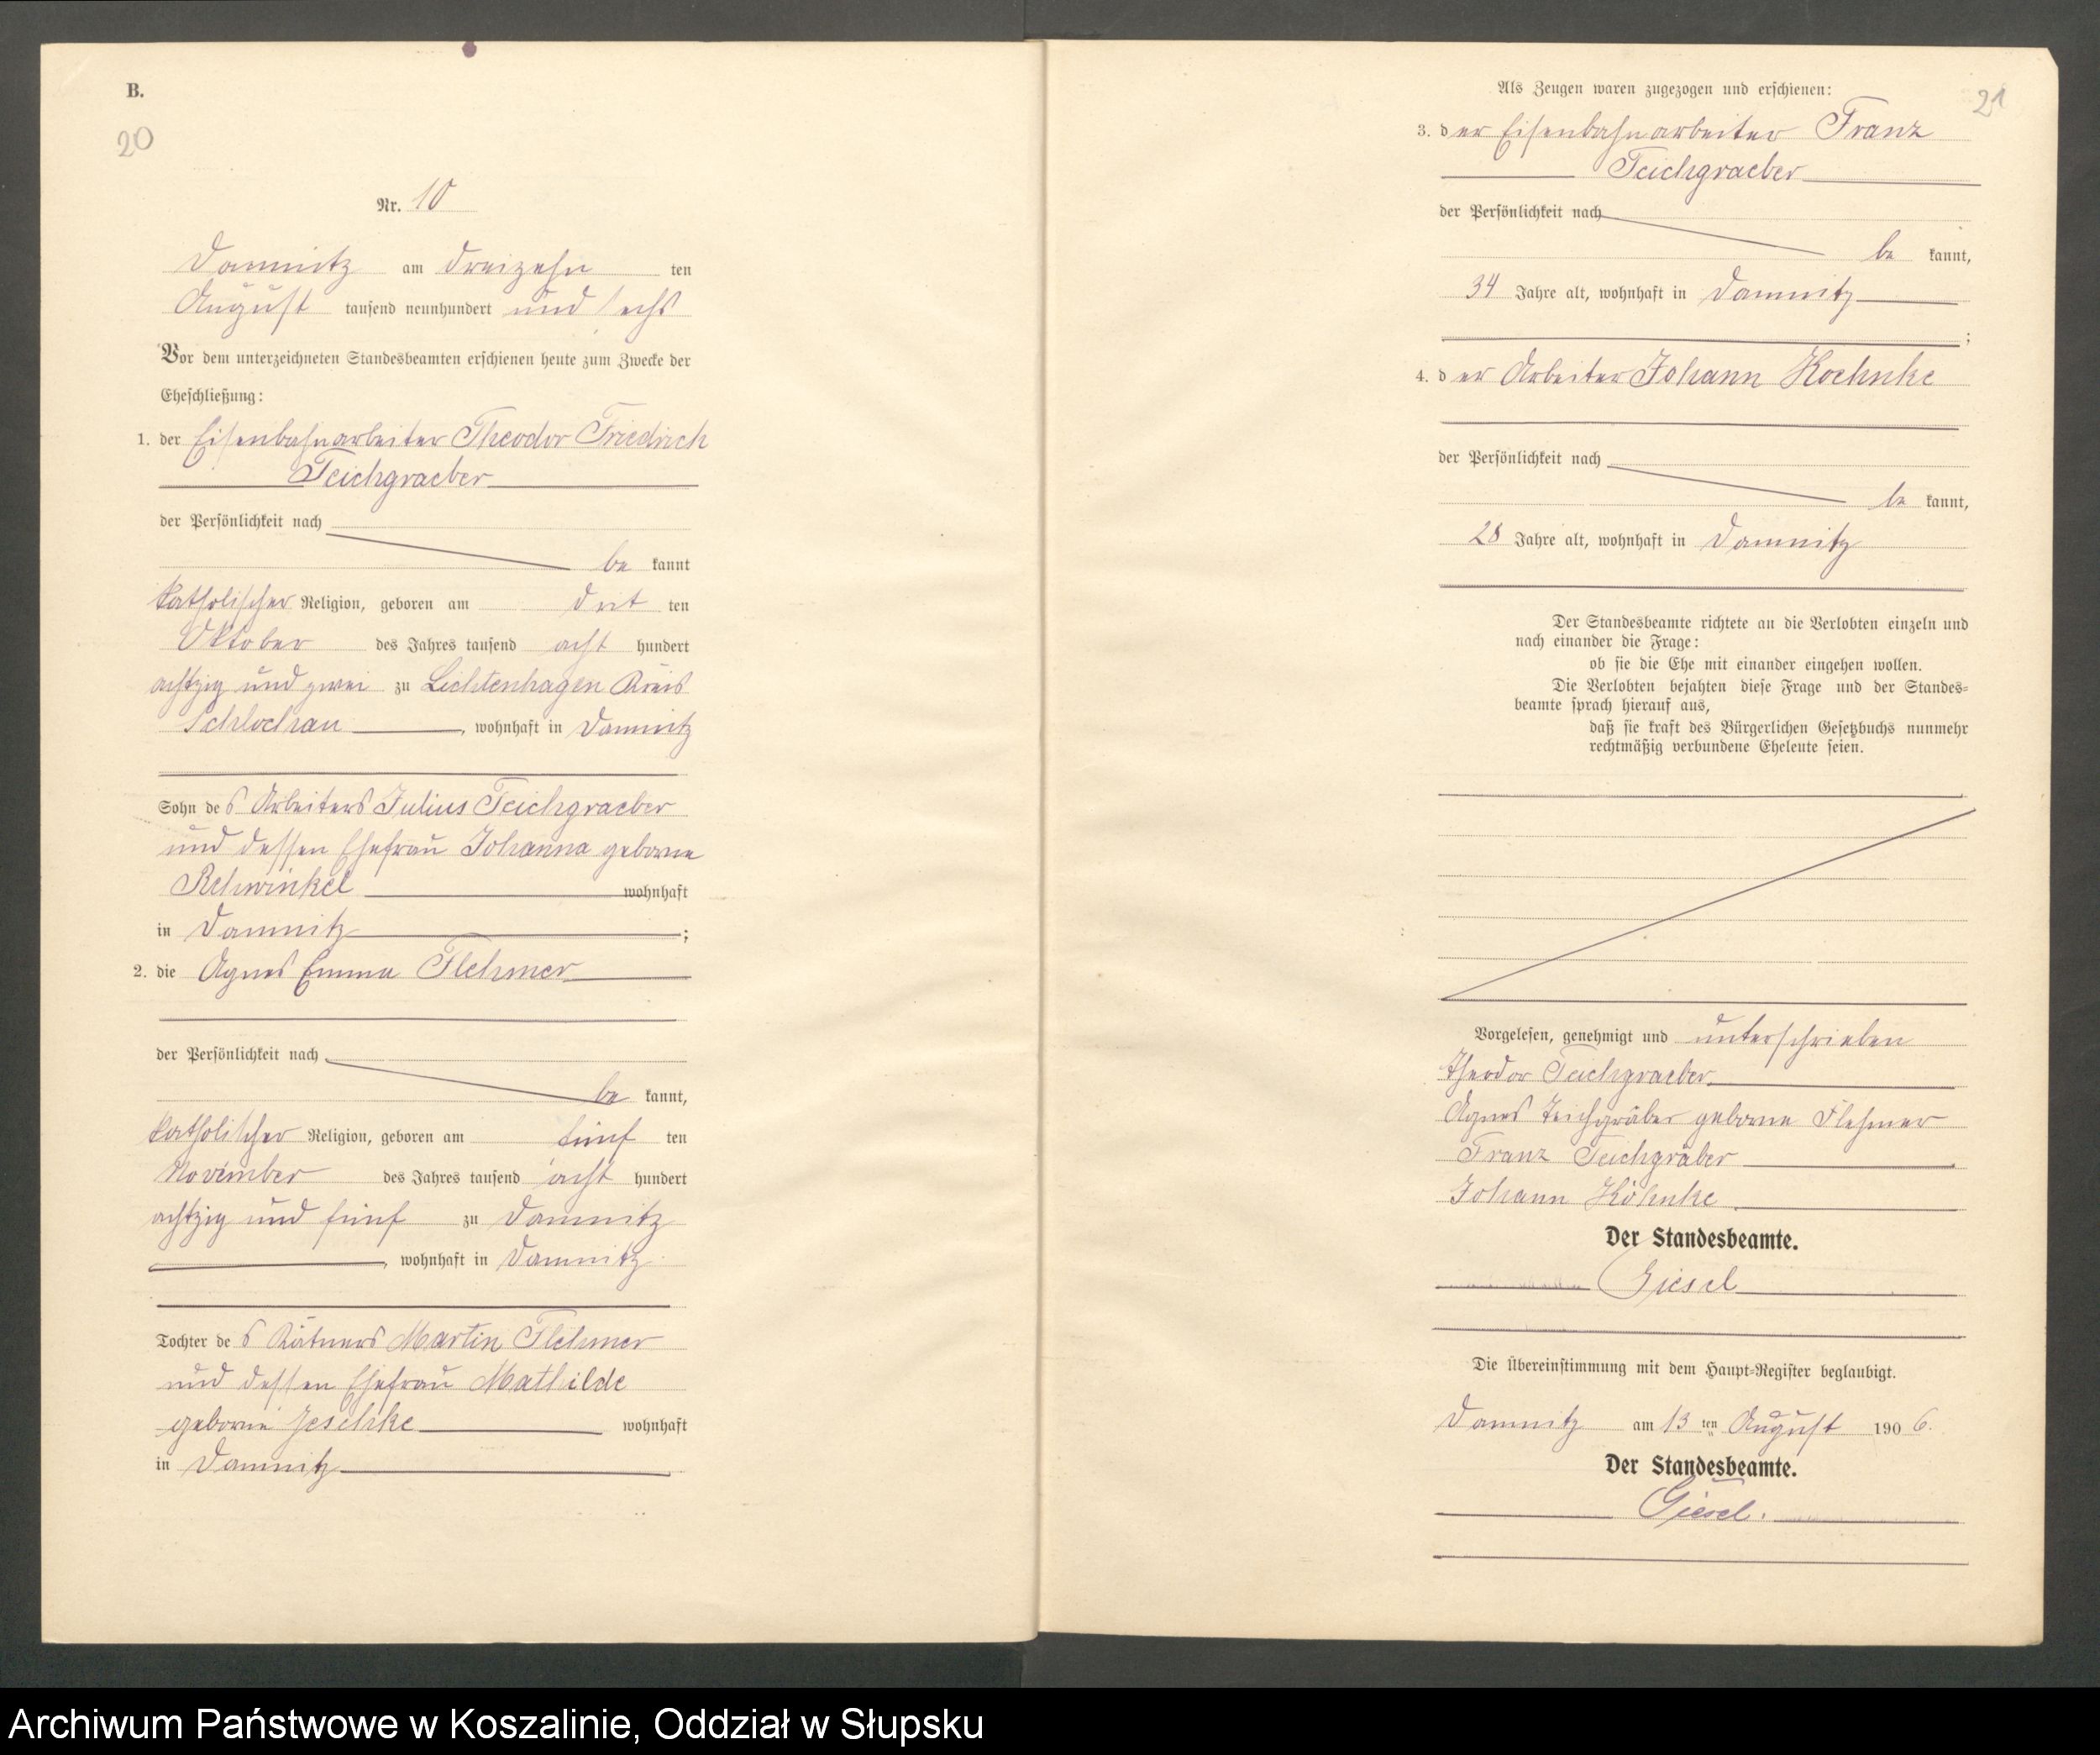 B.
20
Nr. 10
Damnitz am dreizehn ten
August tausend neunhundert und sechs
Vor dem unterzeichneten Standesbeamten erschienen heute zum Zwecke der
Eheschließung:
1. der Eisenbahnarbeiter Theodor Friedrich
Teichgraeber
der Persönlichkeit nach
be kannt
katholischer Religion, geboren am drit ten
Oktober des Jahres tausend acht hundert
achtzig und zwei zu Lichtenhagen Kreis
Schlochau, wohnhaft in Damnitz
Sohn des Arbeiters Julius Teichgraeber
und dessen Ehefrau Johanna geborne
Rehwinkel wohnhaft
in Damnitz;
2. die Agnes Emma Flehmer
der Persönlichkeit nach
be kannt,
katholischer Religion, geboren am fünf ten
November des Jahres tausend acht hundert
achtzig und fünf zu Damnitz
, wohnhaft in Damnitz
Tochter des Kätners Martin Flehmer
und dessen Ehefrau Mathilde
geborne Jeschke wohnhaft
in Damnitz
21
Als Zeugen waren zugezogen und erschienen:
3. der Eisenbahnarbeiter Franz
Teichgraeber
der Persönlichkeit nach
be kannt,
34 Jahre alt, wohnhaft in Damnitz
;
4. der Arbeiter Johann Koehnke
der Persönlichkeit nach
be kannt,
28 Jahre alt, wohnhaft in Damnitz
Der Standesbeamte richtete an die Verlobten einzeln und
nach einander die Frage:
ob sie die Ehe mit einander eingehen wollen.
Die Verlobten bejahten diese Frage und der Standes-
beamte sprach hierauf aus,
daß sie kraft des Bürgerlichen Gesetzbuchs nunmehr
rechtmäßig verbundene Eheleute seien.
Vorgelesen, genehmigt und unterschrieben
Theodor Teichgraeber
Agnes Teichgräber geborne Flehmer
Franz Teichgräber
Johann Köhnke
Der Standesbeamte.
Giesel
Die Übereinstimmung mit dem Haupt-Register beglaubigt.
Damnitz am 13 ten August 1906.
Der Standesbeamte.
Giesel.
Archiwum Państwowe w Koszalinie, Oddział w Słupsku